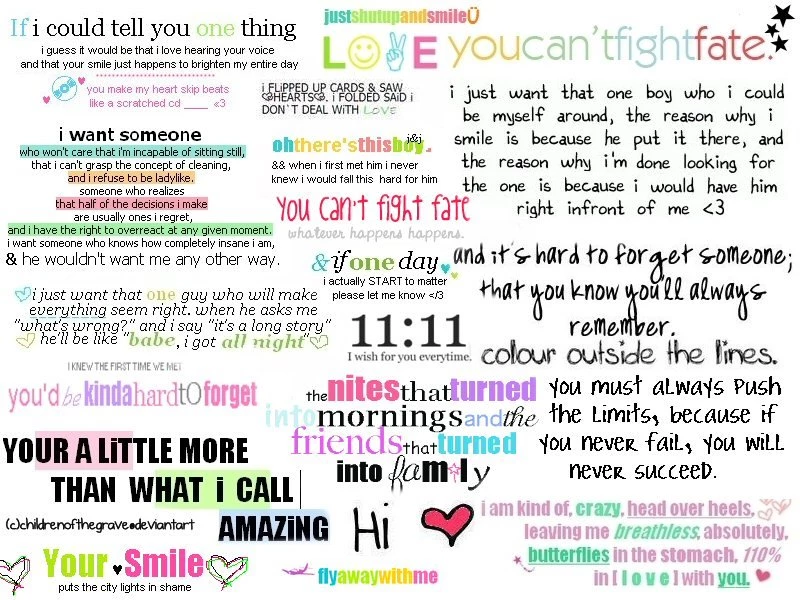 If i could tell you one thing
i guess it would be that i love hearing your voice
and that your smile just happens to brighten my entire day
you make my heart skip beats
like a scratched cd ____ <3
i want someone
who won't care that i'm incapable of sitting still,
that i can't grasp the concept of cleaning,
and i refuse to be ladylike.
someone who realizes
that half of the decisions i make
are usually ones i regret,
and i have the right to overreact at any given moment.
i want someone who knows how completely insane i am,
& he wouldn't want me any other way.
i just want that one guy who will make
everything seem right. when he asks me
"what's wrong?" and i say "it's a long story"
he'll be like "babe, i got all night"
I KNEW THE FIRST TIME WE MET
you'd be kinda hard tO forget
YOUR A LiTTLE MORE
THAN WHAT i CALL
AMAZiNG
(c)childrenofthegrave@deviantart
Your ♥ Smile
puts the city lights in shame
justshutupandsmileÜ
LOVE
i FLiPPED UP CARDS & SAW
HEARTS. i FOLDED SAiD i
DON`T DEAL WiTH LOVE
j&j
ohthere'sthisboy..
&& when i first met him i never
knew i would fall this hard for him
YOU CAN'T fiGHT fATE
whatever happens happens.
& if one day
i actually START to matter
please let me know </3
11:11
I wish for you everytime.
the nites that turned
into mornings and the
friends that turned
into family
Hi
flyawaywithme
youcan'tfightfate.
i just want that one boy who i could
be myself around, the reason why i
smile is because he put it there, and
the reason why i'm done looking for
the one is because i would have him
right infront of me <3
and it's hard to forget someone;
that you know you'll always
remember.
colour outside the lines.
you must always push
the limits, because if
you never fail, you will
never succeed.
i am kind of, crazy, head over heels,
leaving me breathless, absolutely,
butterflies in the stomach, 110%
in [ l o v e ] with you.